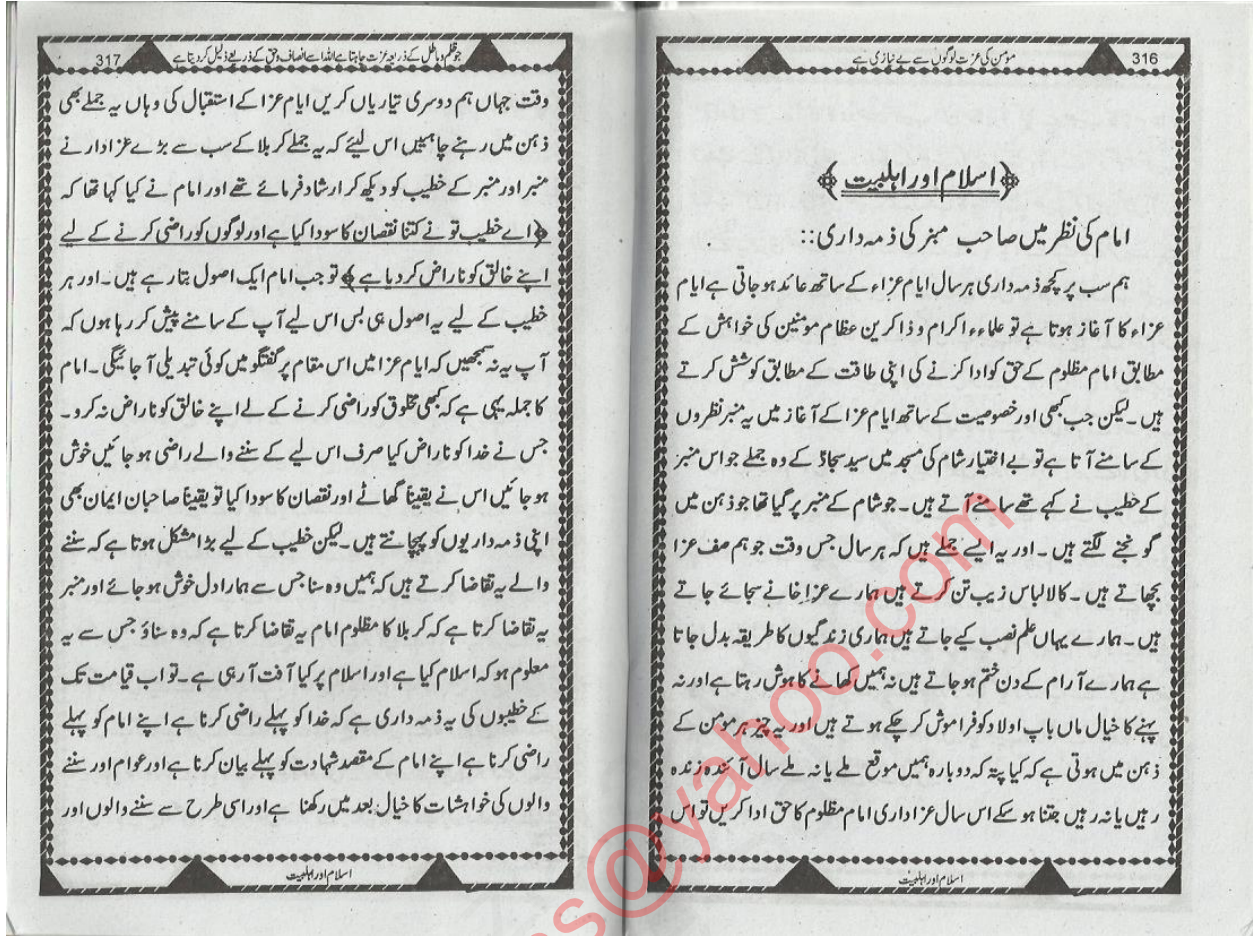 316
مؤمن کی عزت لوگوں سے بے نیازی ہے
﴿اسلام اور اہلبیت﴾
امام کی نظر میں صاحب مبنر کی ذمہ داری::
ہم سب پر کچھ ذمہ داری ہر سال ایام عزاء کے ساتھ عائد ہو جاتی ہے ایام
عزاء کا آغاز ہوتا ہے تو علماءء اکرام و ذاکرین عظام مومنین کی خواہش کے
مطابق امام مظلوم کے حق کو ادا کرنے کی اپنی طاقت کے مطابق کوشش کرتے
ہیں۔ لیکن جب کبھی اور خصوصیت کے ساتھ ایام عزا کے آغاز میں یہ منبر نظروں
کے سامنے آتا ہے تو بے اختیار شام کی مسجد میں سید سجادؑ کے وہ جملے جو اس منبر
کے خطیب نے کہے تھے سامنے آتے ہیں۔ جو شام کے منبر پر گیا تھا جو ذہن میں
گونجنے لگتے ہیں۔ اور یہ ایسے جملے ہیں کہ ہر سال جس وقت جو ہم صف عزا
بچھاتے ہیں۔ کالا لباس زیب تن کرتے ہیں ہمارے عزا خانے سجائے جاتے
ہیں۔ ہمارے یہاں علم نصب کیے جاتے ہیں ہماری زندگیوں کا طریقہ بدل جاتا
ہے ہمارے آرام کے دن ختم ہو جاتے ہیں نہ ہمیں کھانے کا ہوش رہتا ہے اور نہ
پہنے کا خیال ماں باپ اولاد کو فراموش کر چکے ہوتے ہیں اور یہ چیز ہر مومن کے
ذہن میں ہوتی ہے کہ کیا پتہ کہ دوبارہ ہمیں موقع ملے یا نہ ملے سال آئندہ زندہ
رہیں یا نہ رہیں جتنا ہو سکے اس سال عزاداری امام مظلوم کا حق ادا کریں تو اس
اسلام اور اہلبیت
317
جو ظلم و باطل کے ذریعہ عزت چاہتا ہے اللہ اسے انصاف و حق کے ذریعے ذلیل کر دیتا ہے
وقت جہاں ہم دوسری تیاریاں کریں ایام عزا کے استقبال کی وہاں یہ جملے بھی
ذہن میں رہنے چاہئیں اس لیئے کہ یہ جملے کربلا کے سب سے بڑے عزادار نے
منبر اور منبر کے خطیب کو دیکھ کر ارشاد فرمائے تھے اور امام نے کیا کہا تھا کہ
﴿اے خطیب تو نے کتنا نقصان کا سودا کیا ہے اور لوگوں کو راضی کرنے کے لیے
اپنے خالق کو ناراض کر دیا ہے﴾ تو جب امام ایک اصول بتا رہے ہیں۔ اور ہر
خطیب کے لیے یہ اصول ہی بس اس لیے آپ کے سامنے پیش کر رہا ہوں کہ
آپ یہ نہ سمجھیں کہ ایام عزا میں اس مقام پر گفتگو میں کوئی تبدیلی آ جائیگی۔ امام
کا جملہ یہی ہے کہ کبھی مخلوق کو راضی کرنے کے لے اپنے خالق کو ناراض نہ کرو۔
جس نے خدا کو ناراض کیا صرف اس لیے کے سننے والے راضی ہو جائیں خوش
ہو جائیں اس نے یقیناً گھاٹے اور نقصان کا سودا کیا تو یقیناً صاحبان ایمان بھی
اپنی ذمہ داریوں کو پہچانتے ہیں۔ لیکن خطیب کے لیے بڑا مشکل ہوتا ہے کہ سننے
والے یہ تقاضا کرتے ہیں کہ ہمیں وہ سنا جس سے ہمارا دل خوش ہو جائے اور منبر
یہ تقاضا کرتا ہے کہ کربلا کا مظلوم امام یہ تقاضا کرتا ہے کہ وہ سناؤ جس سے یہ
معلوم ہو کہ اسلام کیا ہے اور اسلام پر کیا آفت آ رہی ہے۔ تو اب قیامت تک
کے خطیبوں کی یہ ذمہ داری ہے کہ خدا کو پہلے راضی کرنا ہے اپنے امام کو پہلے
راضی کرنا ہے اپنے امام کے مقصد شہادت کو پہلے بیان کرنا ہے اور عوام اور سننے
والوں کی خواہشات کا خیال بعد میں رکھنا ہے اور اسی طرح سے سننے والوں اور
اسلام اور اہلبیت
s@yahoo.com